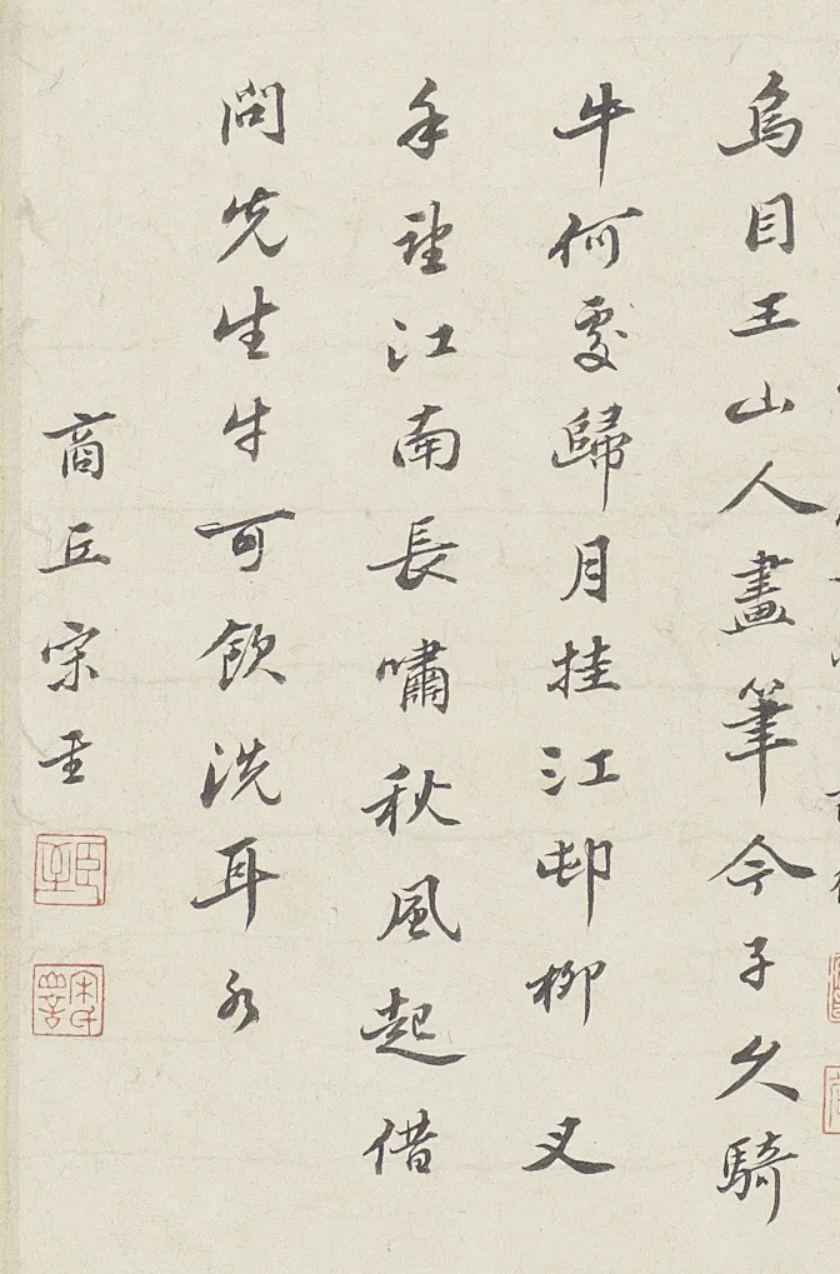 烏目王山人畫筆今子久騎
牛何處歸月挂江邨柳叉
手望江南長嘯秋風起借
問先生牛可飲洗耳水
商丘宋至
臣至
宋氏山言